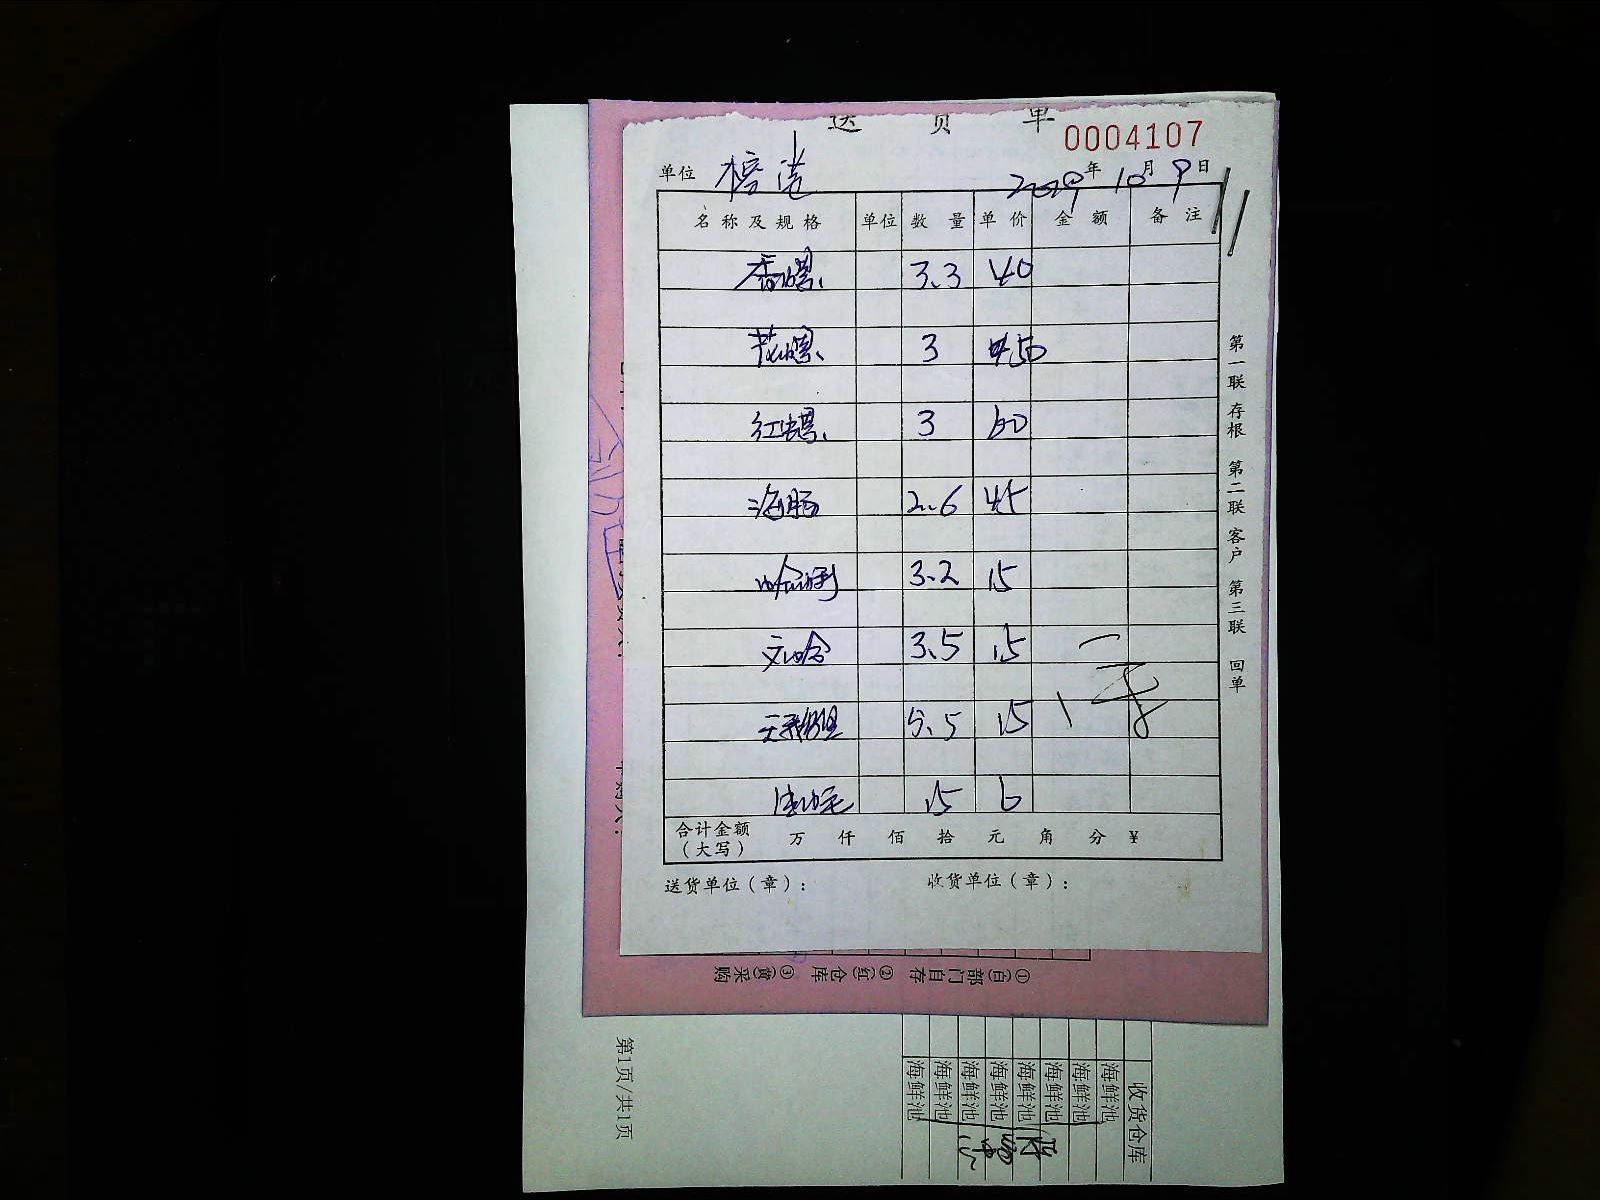 送 货 单
0004107
单位
年 10 月 9 日
名称及规格 单位 数 量 单 价 金 额 备 注
香螺 3.3 40
花螺 3 450
红螺 3 60
海肠 2.6 45
3.2 15
文蛤 3.5 15
5.5 15
15 6
合计金额
（大写） 万 仟 佰 拾 元 角 分 ¥
送货单位（章）： 收货单位（章）：
第一联 存根 第二联 客户 第三联 回单
①(白)部门自存 ②(红)仓库 ③(黄)采购
第1页/共1页
收货仓库
海鲜池
海鲜池
海鲜池
海鲜池
海鲜池
海鲜池
海鲜池
海鲜池